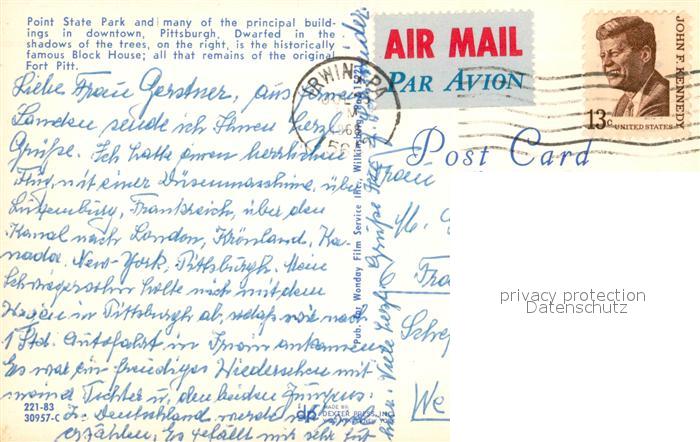 Point State Park and many of the principal build-
ings in downtown, Pittsburgh. Dwarfed in the
shadows of the trees, on the right, is the historically
famous Block House; all that remains of the original
Fort Pitt.
Liebe Frau Gerstner, aus fernen
Landen sende ich Ihnen herzl.
Grüße. Ich hatte einen herrlichen
Flug mit einer Düsenmaschine, über
Luxemburg, Frankreich, über den
Kanal nach London, Grönland, Ka-
nada. New-York, Pittsburgh. Mein
Schwiegersohn holte mich mit dem
Wagen in Pittsburgh ab, sodaß wir nach
1 Std. Autofahrt in Irwin ankamen.
Es war ein freudiges Wiedersehen mit
meiner Tochter u. den beiden Jungens.
In Deutschland werde
erzählen. Es gefällt mir sehr gut
hier. Viele herzl. Grüße Ihre
221-83
30957-C
MADE BY
dp
DEXTER PRESS, INC.
Pub. For Wonday Film Service Inc., Wilkinsburg, Pa.
AIR MAIL
PAR AVION
IRWIN, PA
JOHN F. KENNEDY
13c
UNITED STATES
Post Card
Frau
We
privacy protection
Datenschutz